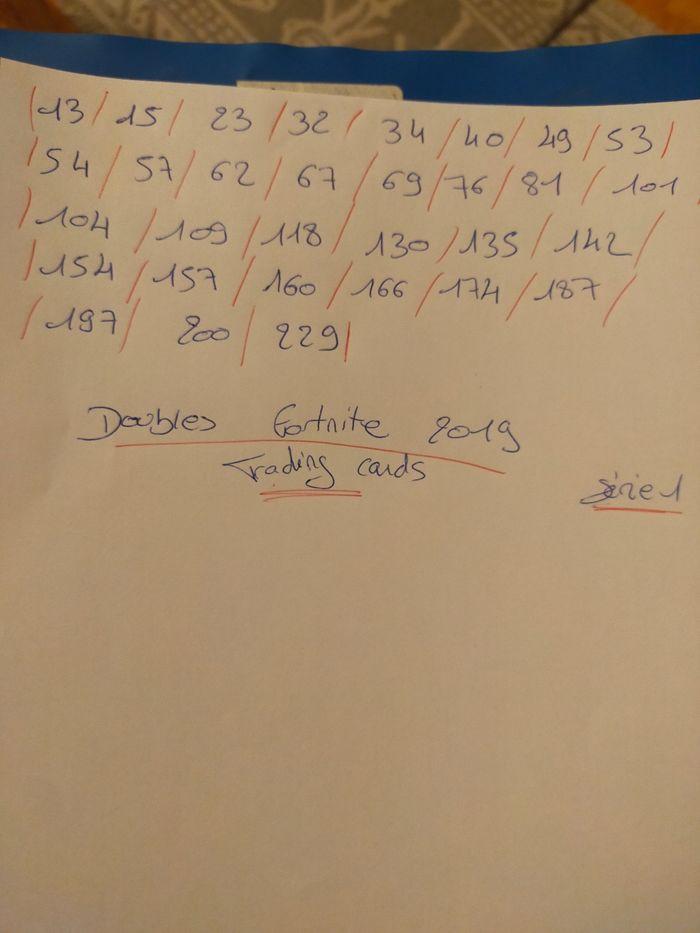 /13/ 15/ 23 /32 / 34 /40/ 49 /53/
/54 / 57/ 62 / 67 / 69/76/81 / 101
/104 /109 /118 / 130 /135 / 142 /
/154 /157 / 160 /166 /174/187 /
/197/ 200 / 229/
Doubles Fortnite 2019
Trading cards
Série 1